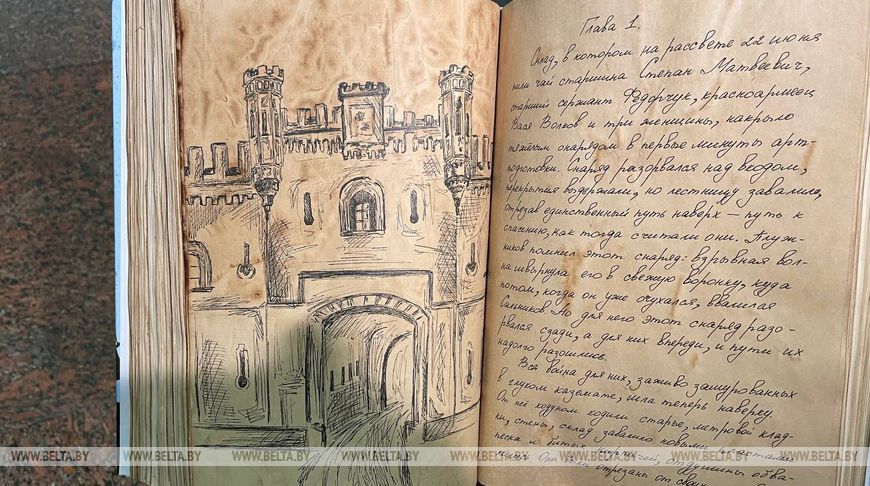 Глава 1.
Склад, в котором на рассвете 22 июня
пили чай старшина Степан Матвеевич,
старший сержант Федорчук, красноармеец
Вася Волков и три женщины, накрыло
тяжёлым снарядом в первые минуты арт-
подготовки. Снаряд разорвался над входом,
перекрытия выдержали, но лестницу завалило,
отрезав единственный путь наверх — путь к
спасению, как тогда считали они. Плуж-
ников помнил этот снаряд: взрывная вол-
на швырнула его в свежую воронку, куда
потом, когда он уже очухался, ввалился
Сальников. Но для него этот снаряд разо-
рвался сзади, а для них впереди, и пути их
надолго разошлись.
Вся война для них, заживо замурованных
в глухом каземате, шла теперь наверху.
От неё ходуном ходили старые, метровой клад-
ки, стены, склад завалило новыми пластами
песка и битых кирпичей, отдушины обва-
отрезаны от своих
WWW.BELTA.BY WWW.BELTA.BY WWW.BELTA.BY WWW.BELTA.BY WWW.BELTA.BY